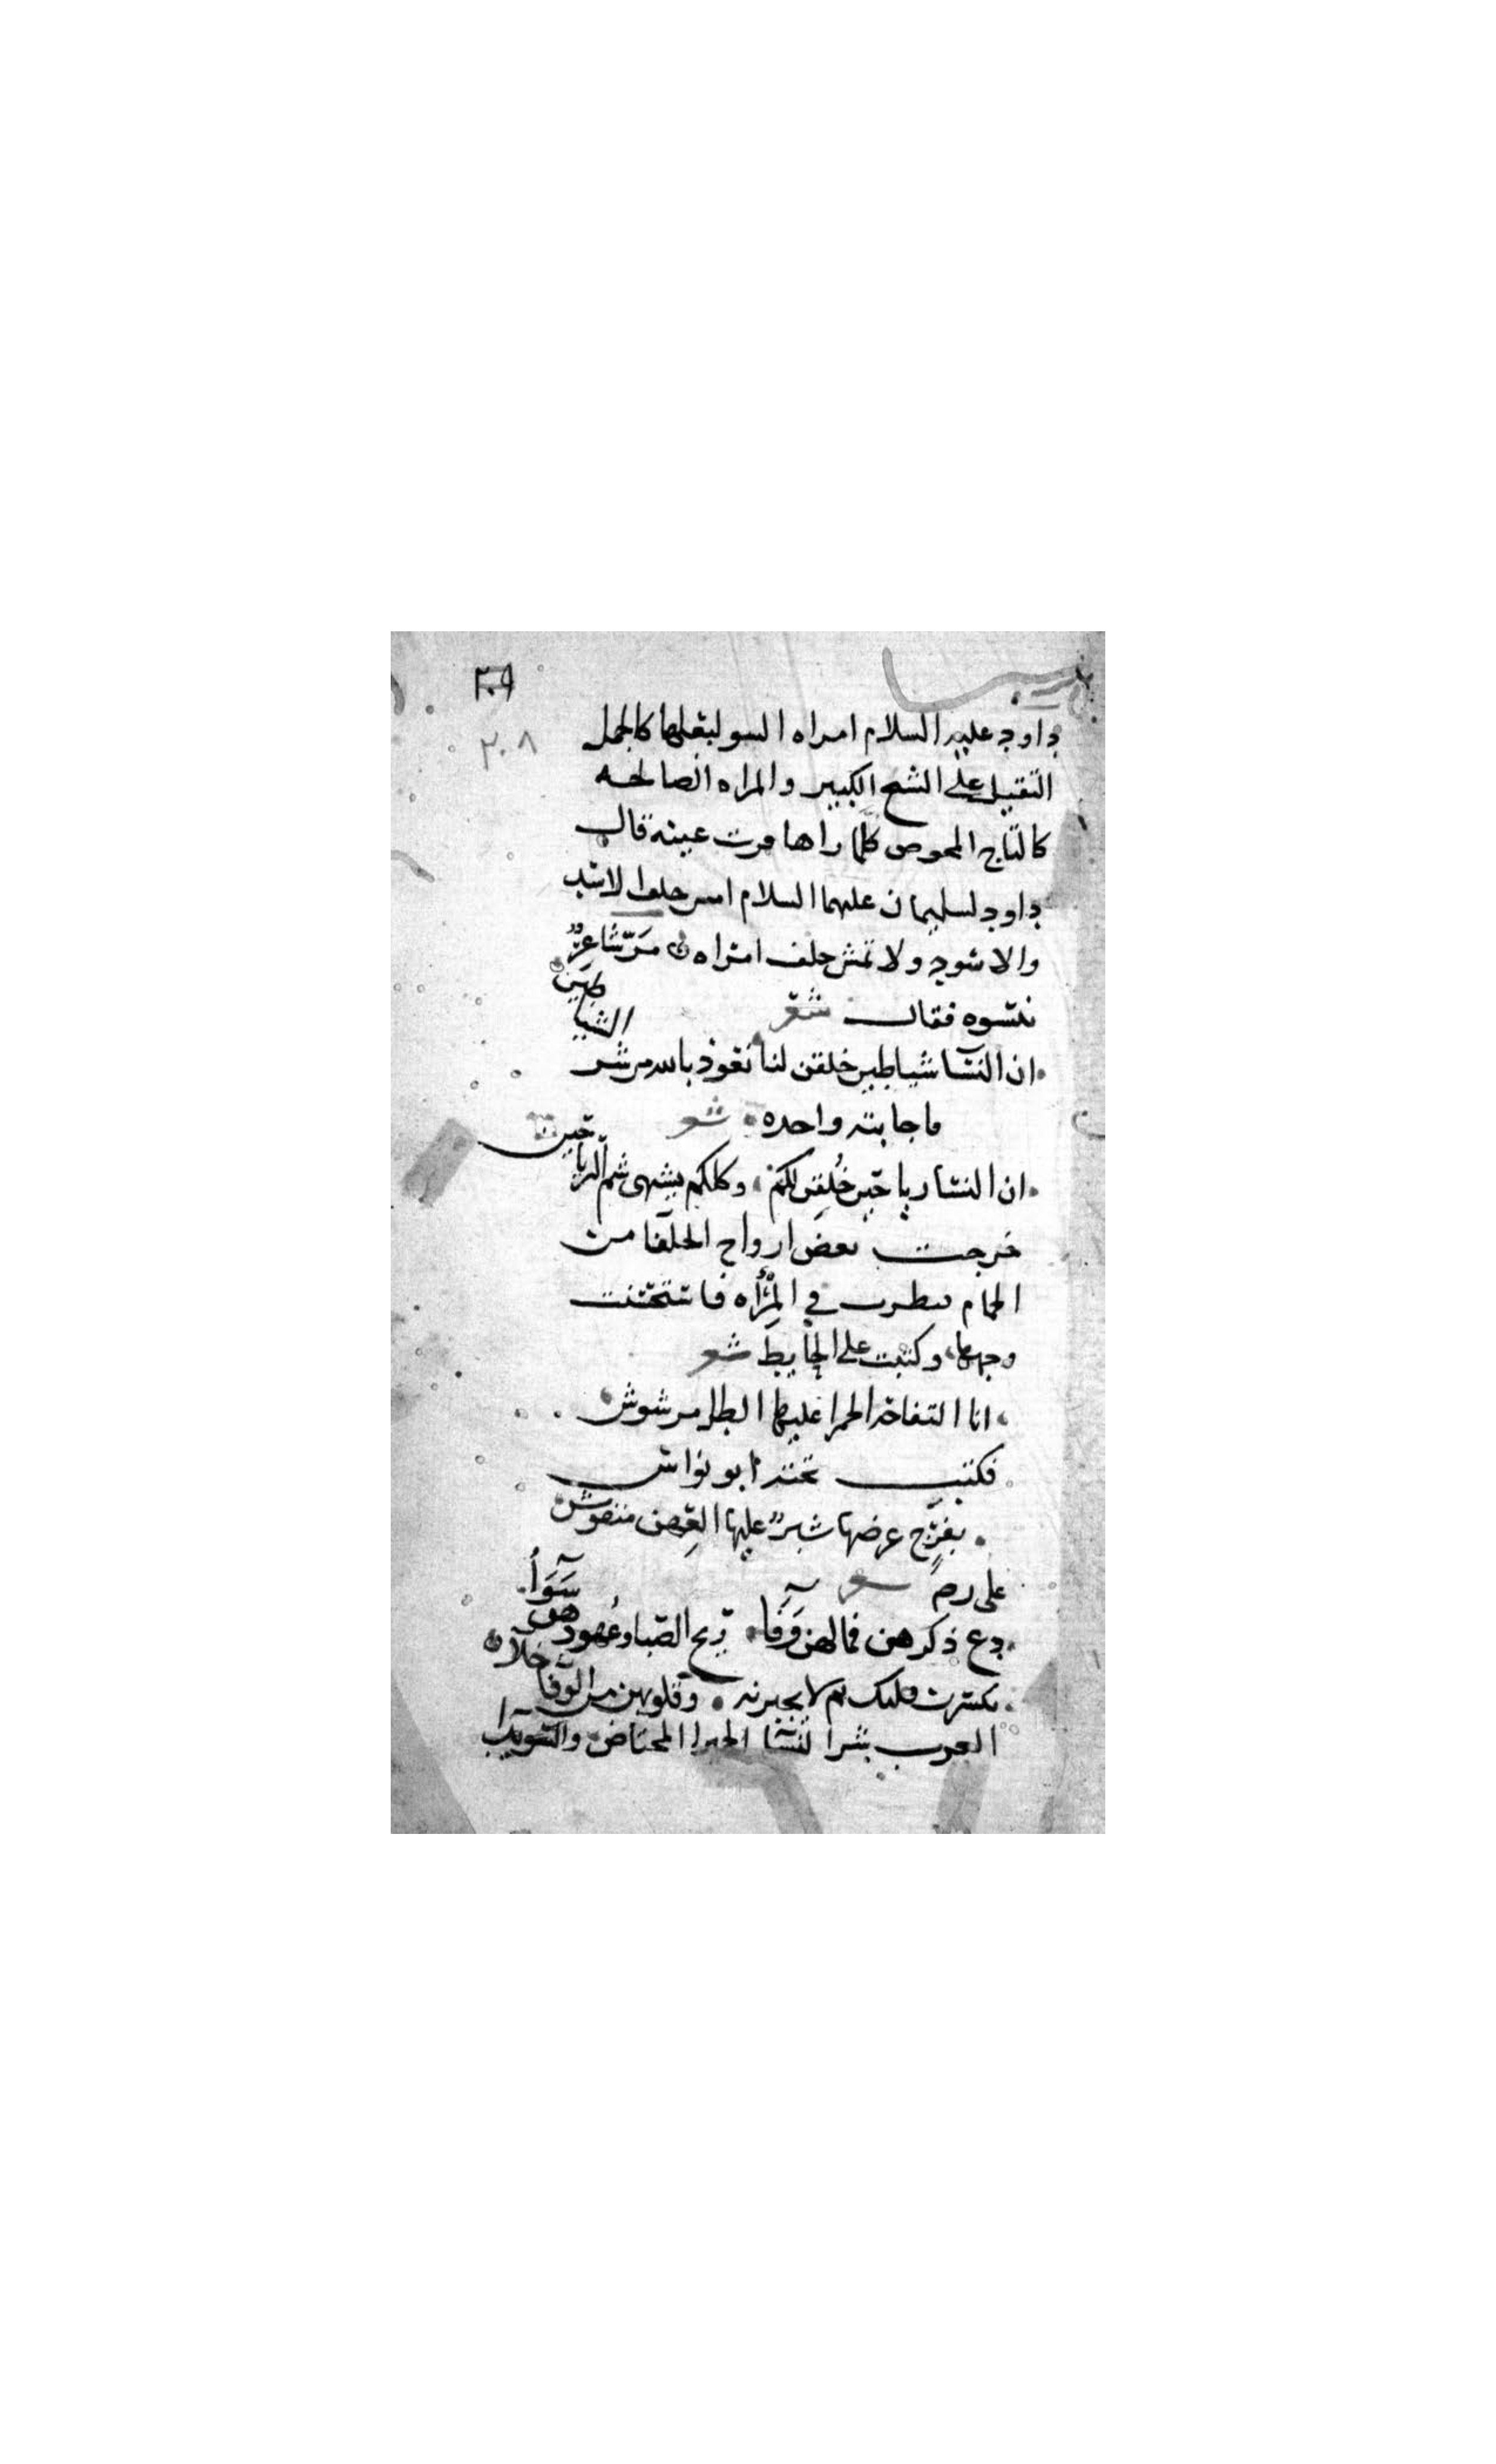 ٢٠٩
٢٠٨
داود عليه السلام امراه السو لبعلها كالحمل
الثقيل على الشيخ الكبير والمراه الصالحه
كالتاج المخوص كلما راها قرت عينه قال
داود لسليمان عليهما السلام امس خلف الاسد
والاسود ولا تمش خلف امراه مَرّ شاعرٌ
بنسوه فقال شعر
ان النسا شياطين خلقن لنا نعوذ بالله من شر الشياطين
فاجابته واحده شعر
ان النسا رياحين خُلقن لكم وكلكم يشتهى شم الرياحين
خرجت بعض ازواج الخلفا من
الحمام فنظرت في المِرْأَه فاستحسنت
وجهها وكتبت على الحايط شعر
انا التفاحه الحمرا عليها الطل مرشوش
فكتب تحته ابو نواس
بفرج عرضها شبرٌ عليها العِهن منفوش
على رضه شعر
دع ذكرهن فما لهن وَفَا ريح الصبا وعُهودهن سَوَاُ
يكسرن قلبك ثم لا يجبرنه وقلوبهن من الوفا خلا
العرب شر النسا الحمرا المحياض والسويدا